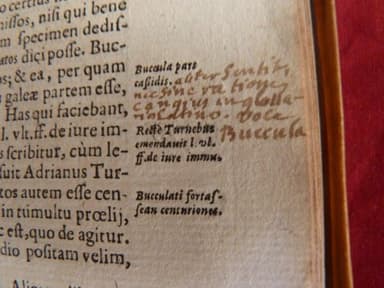 o certius
missos, nisi qui bene
m specimen dedis-
atos dici posse. Buc-
os; & ea, per quam
galeæ partem esse,
Has qui faciebant,
l. vlt. ff. de iure im-
scribitur, cùm le-
suit Adrianus Tur-
tos autem esse cen-
in tumultu prœlij,
c est, quo de agitur.
dio positam velim,
Buccula pars
cassidis.
aliter sentit,
nec sine ratione
cangius in glossa-
rio latino. voce
Buccula
Rectè Turnebus
emendauit l. vl.
ff. de iure immu.
Bucculati fortas-
sean centuriones.